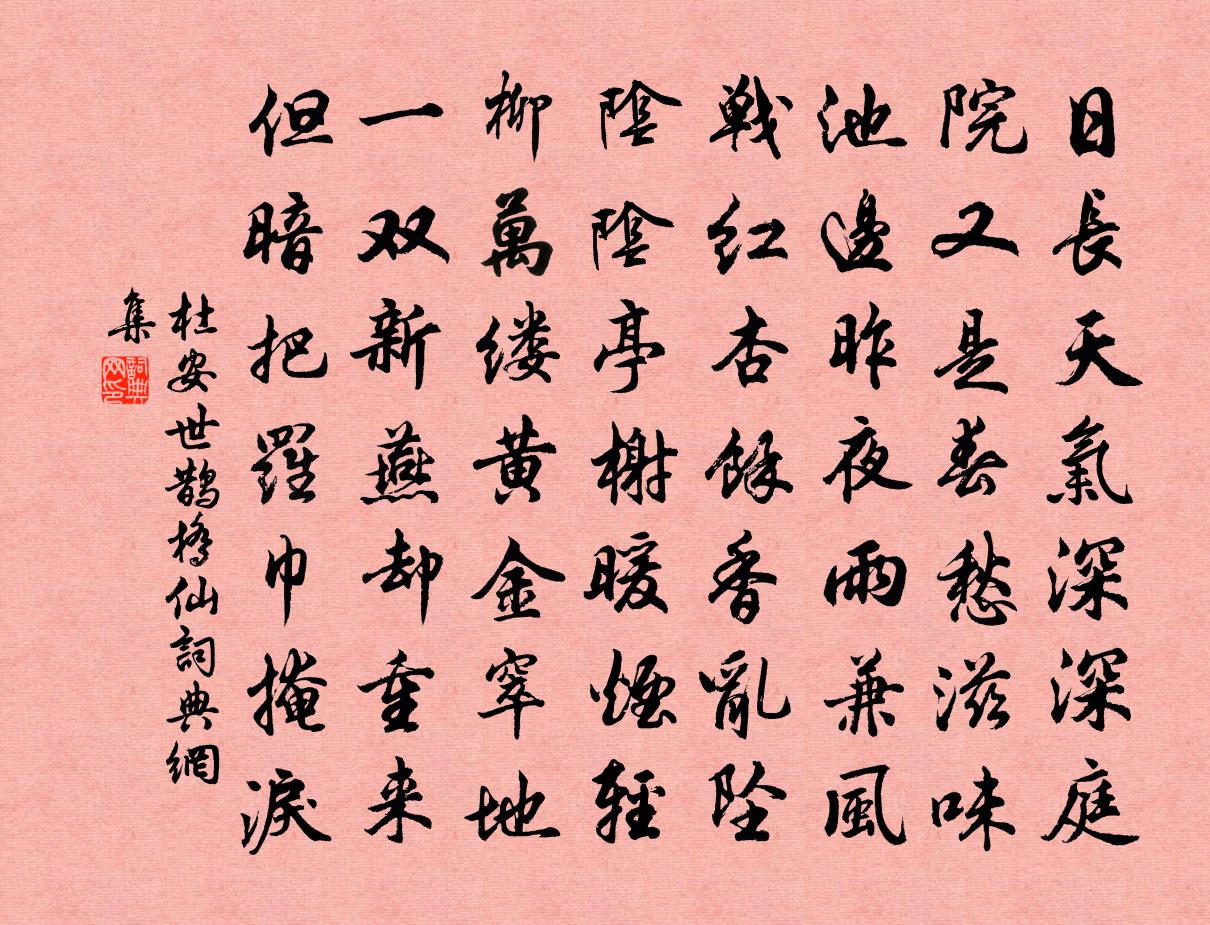 日長天氣深深庭
院又是春愁滋味
池邊昨夜雨兼風
戰紅杏餘香亂墜
陰陰亭榭暖煙輕
柳萬缕黄金窣地
一双新燕却重来
但暗把羅巾掩淚
杜安世鵲橋仙詞典網
集
詞典网印